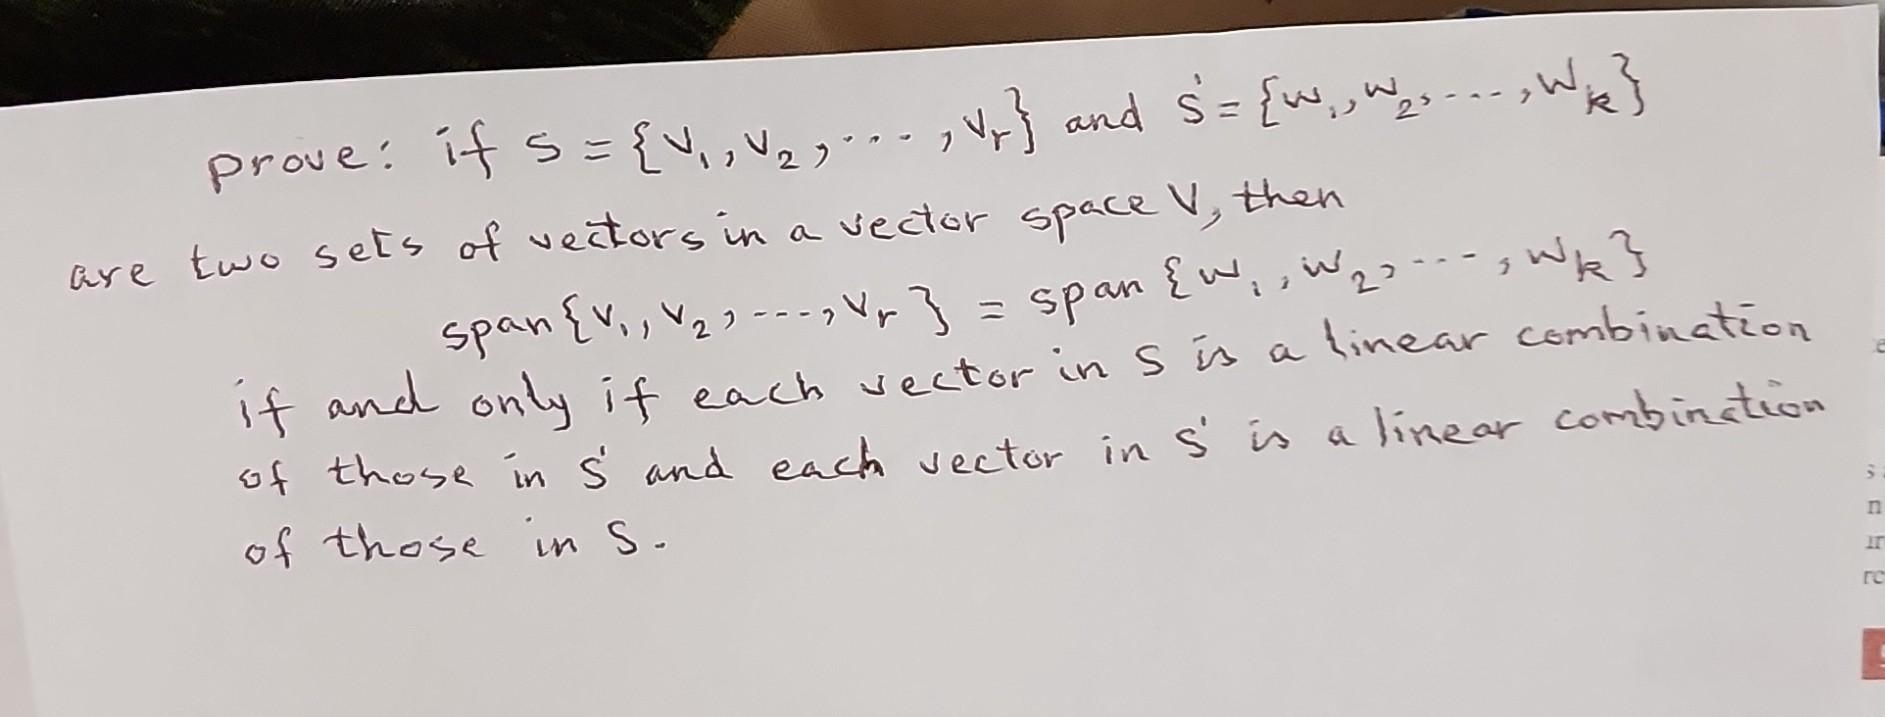 prove: if S = {v₁, v₂, ..., vᵣ} and S' = {w₁, w₂, ..., wₖ}
are two sets of vectors in a vector space V, then
span {v₁, v₂, ..., vᵣ} = span {w₁, w₂, ..., wₖ}
if and only if each vector in S is a linear combination
of those in S' and each vector in S' is a linear combination
of those in S.